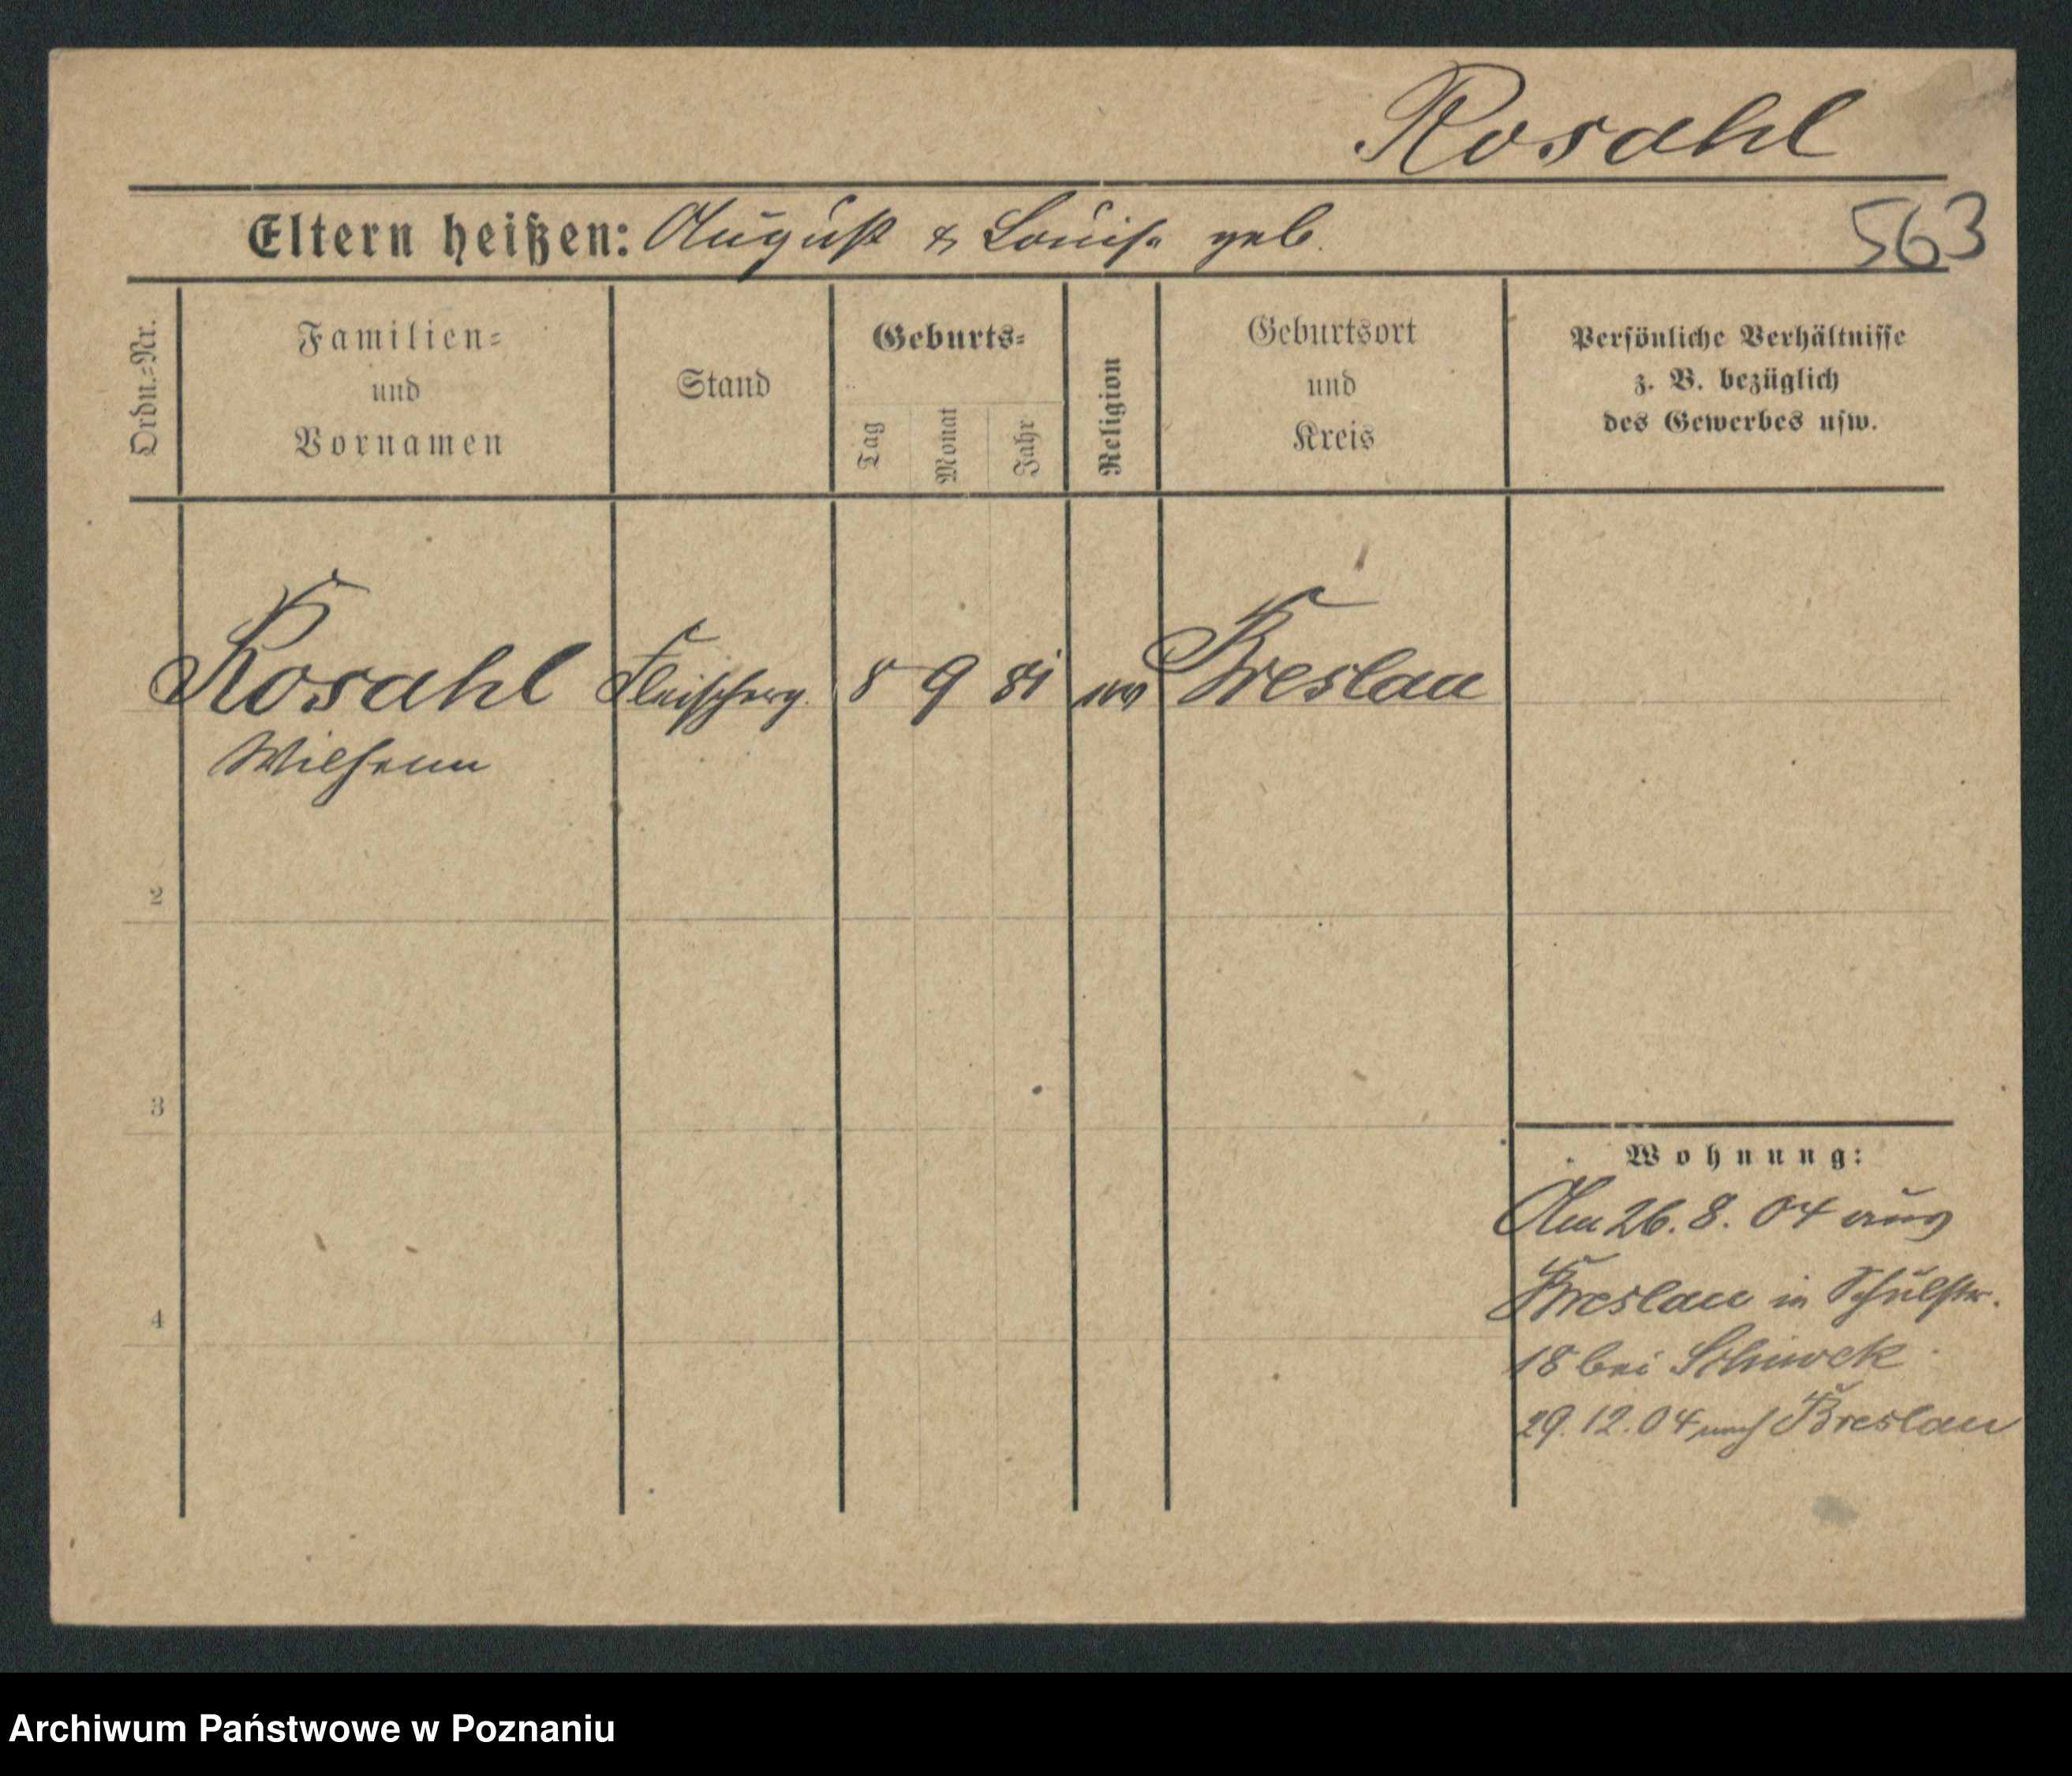 Rosahl
Eltern heißen: August & Louise geb.
563
Ordn.-Nr.
Familien-
und
Vornamen
Stand
Geburts-
Tag
Monat
Jahr
Religion
Geburtsort
und
Kreis
Persönliche Verhältnisse
z. B. bezüglich
des Gewerbes usw.
Rosahl Fleischerg. 8 9 81 ev Breslau
Wilhelm
2
3
4
Wohnung:
Am 26. 8. 04 aus
Breslau in Schulstr.
18 bei
29. 12. 04 nach Breslau
Archiwum Państwowe w Poznaniu